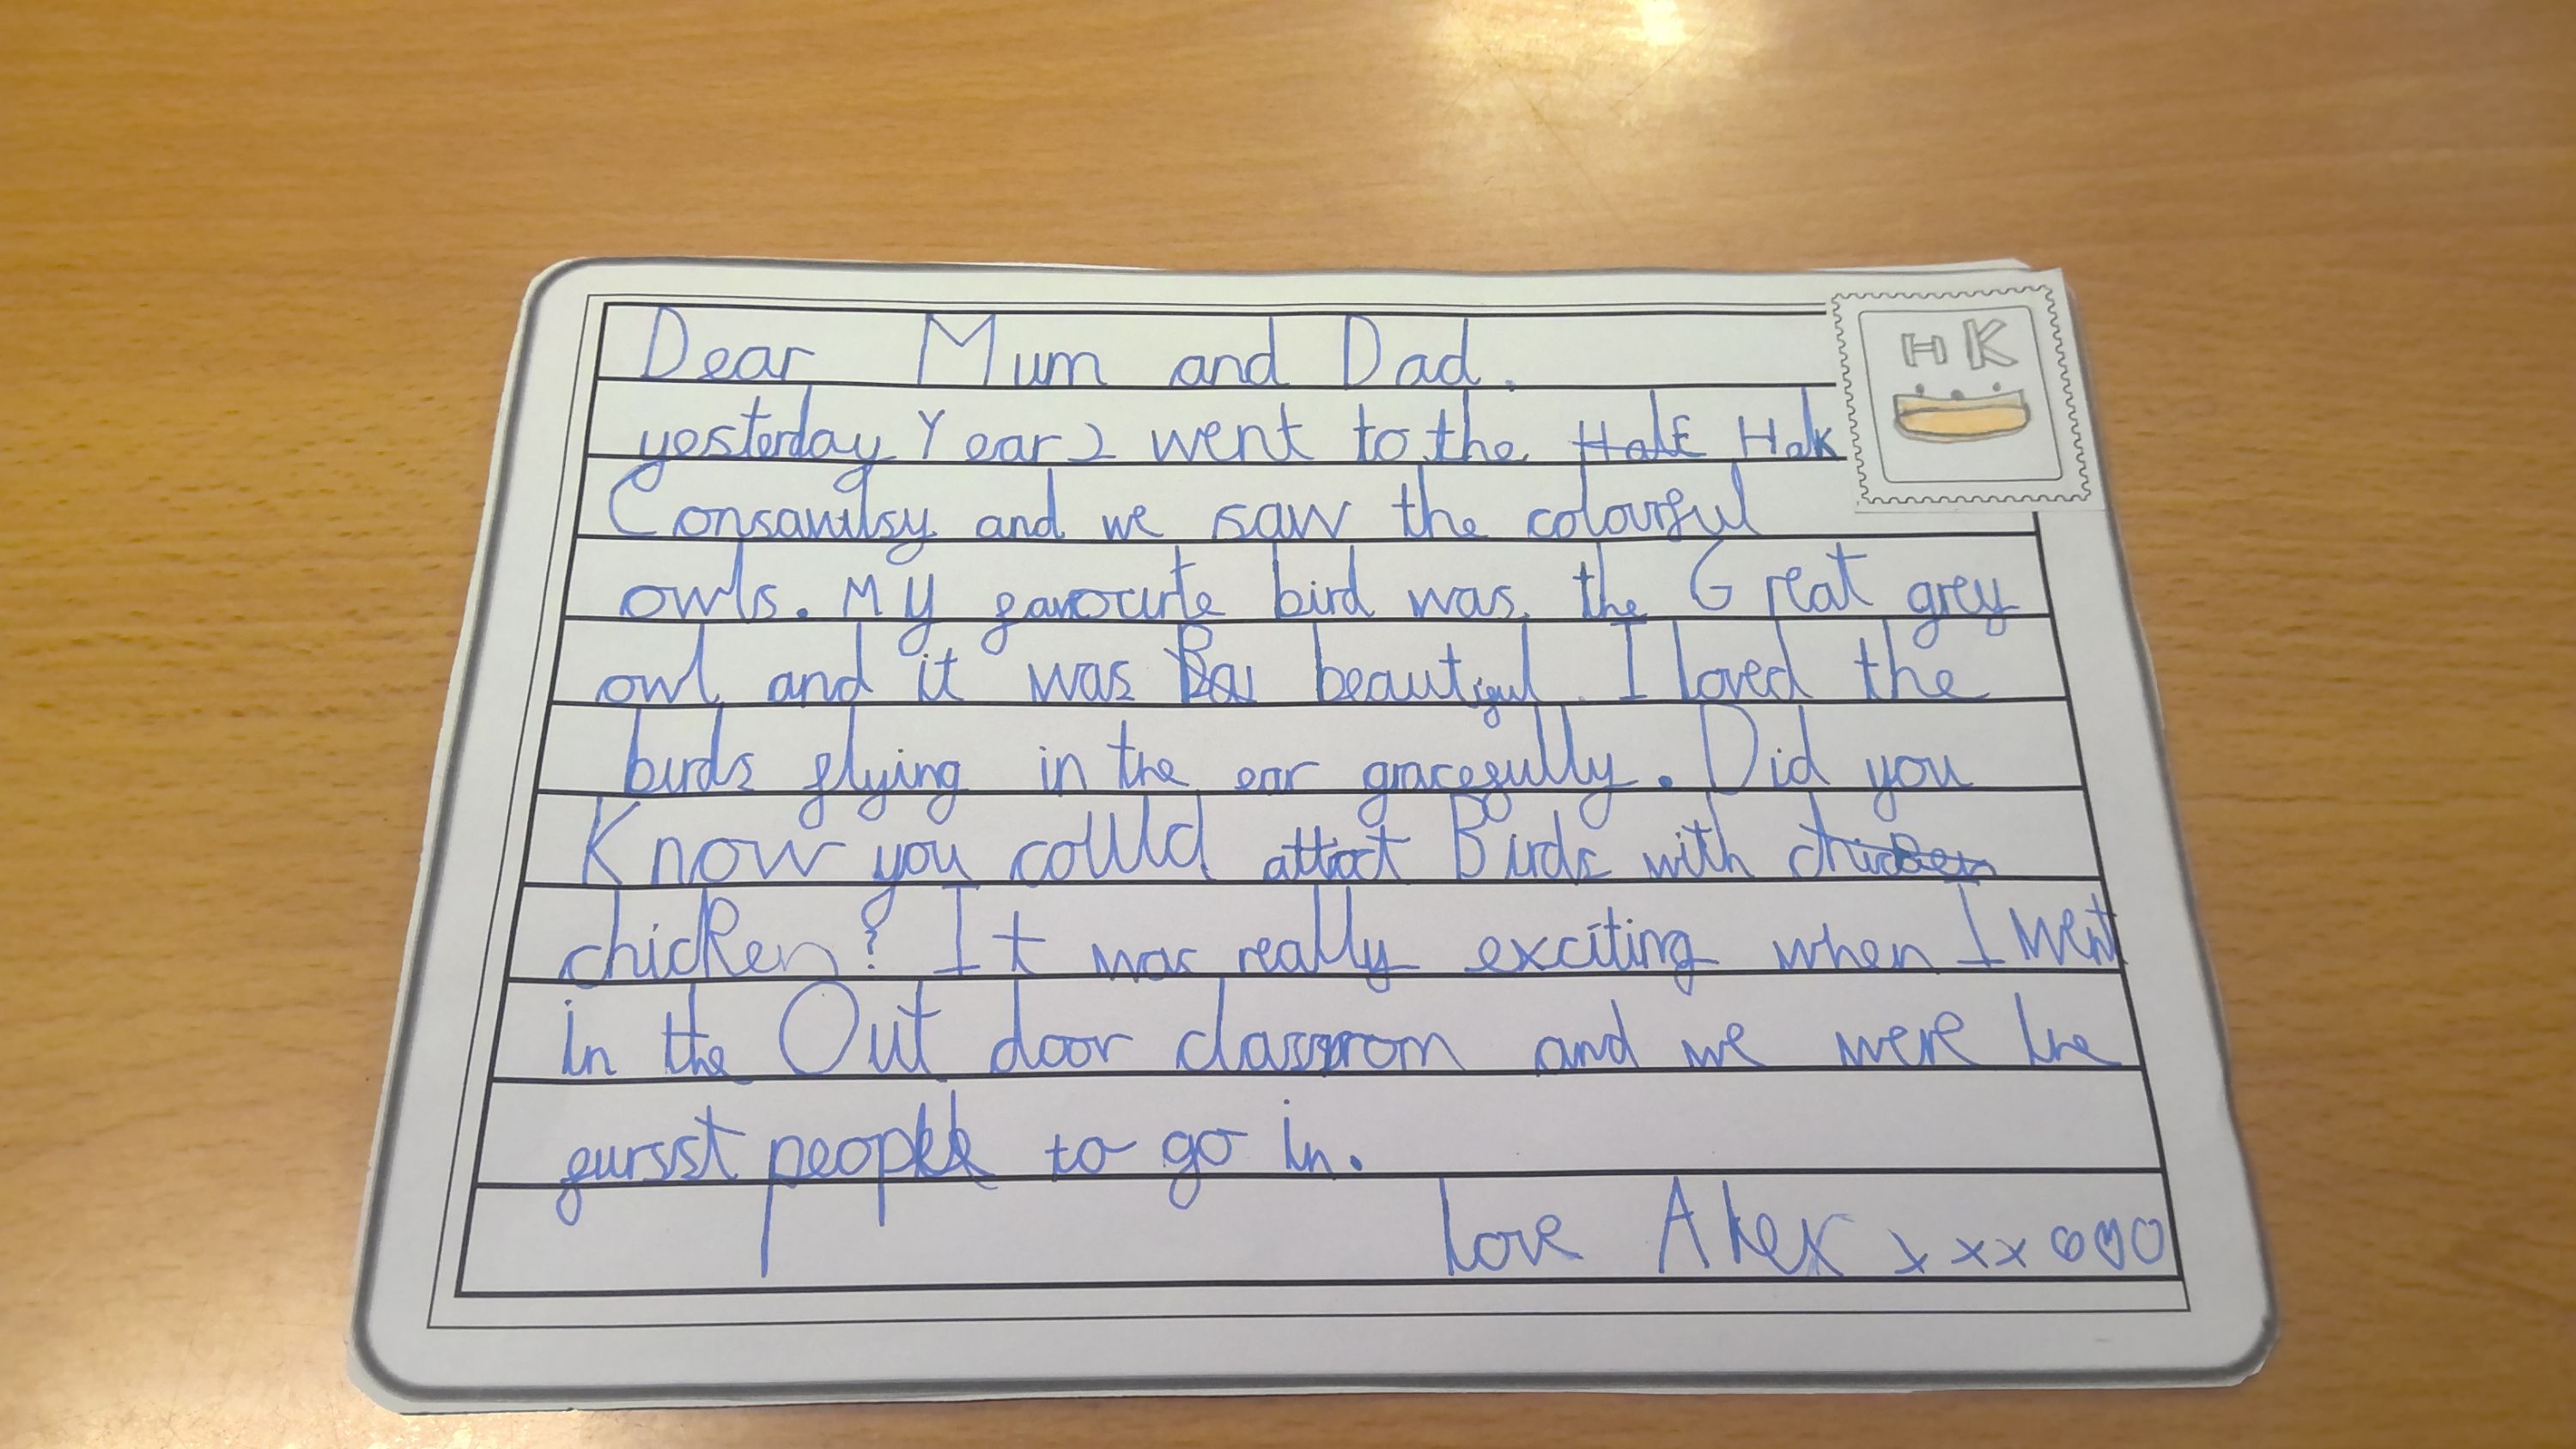 HK
Dear Mum and Dad.
yesterday Year 2 went to the Halk Hak
Consaulsy and we saw the colourful
owls. My favourite bird was the Great grey
owl and it was beautiful. I loved the
birds flying in the ear gracefully. Did you
Know you could attract Birds with chicken
chicken? It was really exciting when I went
in the Out door classroom and we were the
fursst people to go in.
love Alex xxx